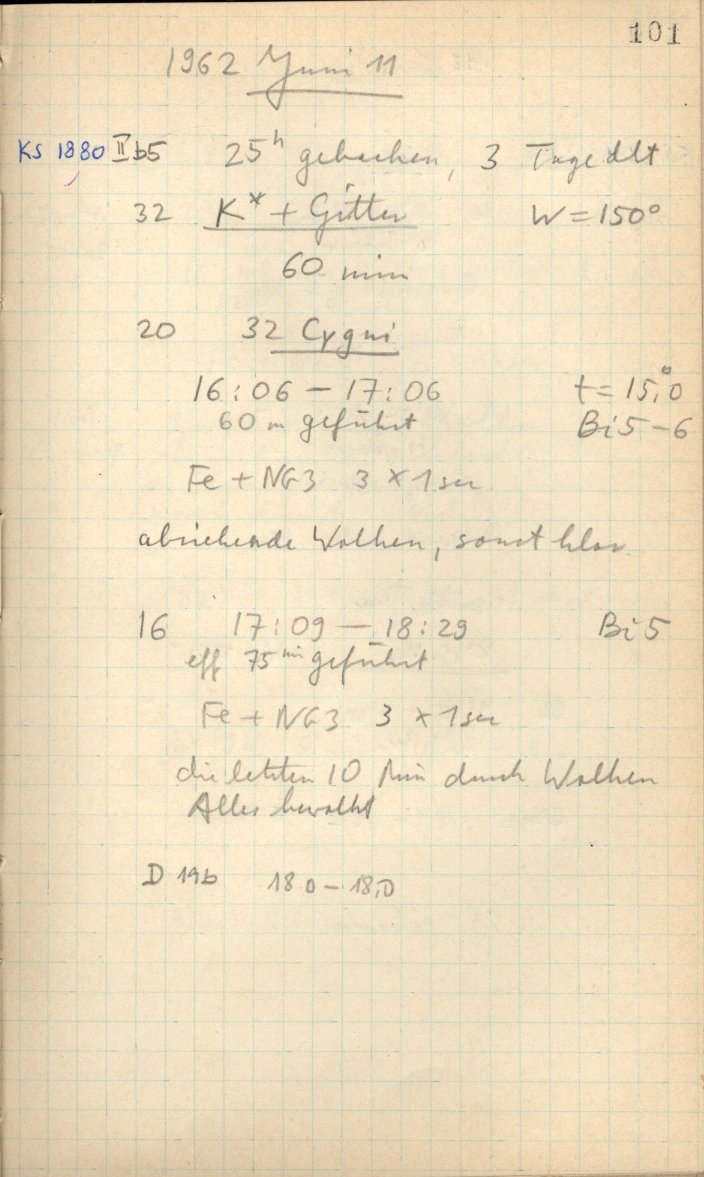 101
1962 Juni 11
KS 1880 II b5 25h gebacken, 3 Tage alt
32 K* + Gitter W = 150°
60 min
20 32 Cygni
16:06 – 17:06 t = 15,°0
60 m geführt Bi 5–6
Fe + NG3 3 × 1 sec
abziehende Wolken, sonst klar
16 17:09 – 18:29 Bi 5
eff 75 min geführt
Fe + NG3 3 × 1 sec
die letzten 10 Min durch Wolken
Alles bewölkt
D 19b 18.0 – 18,0